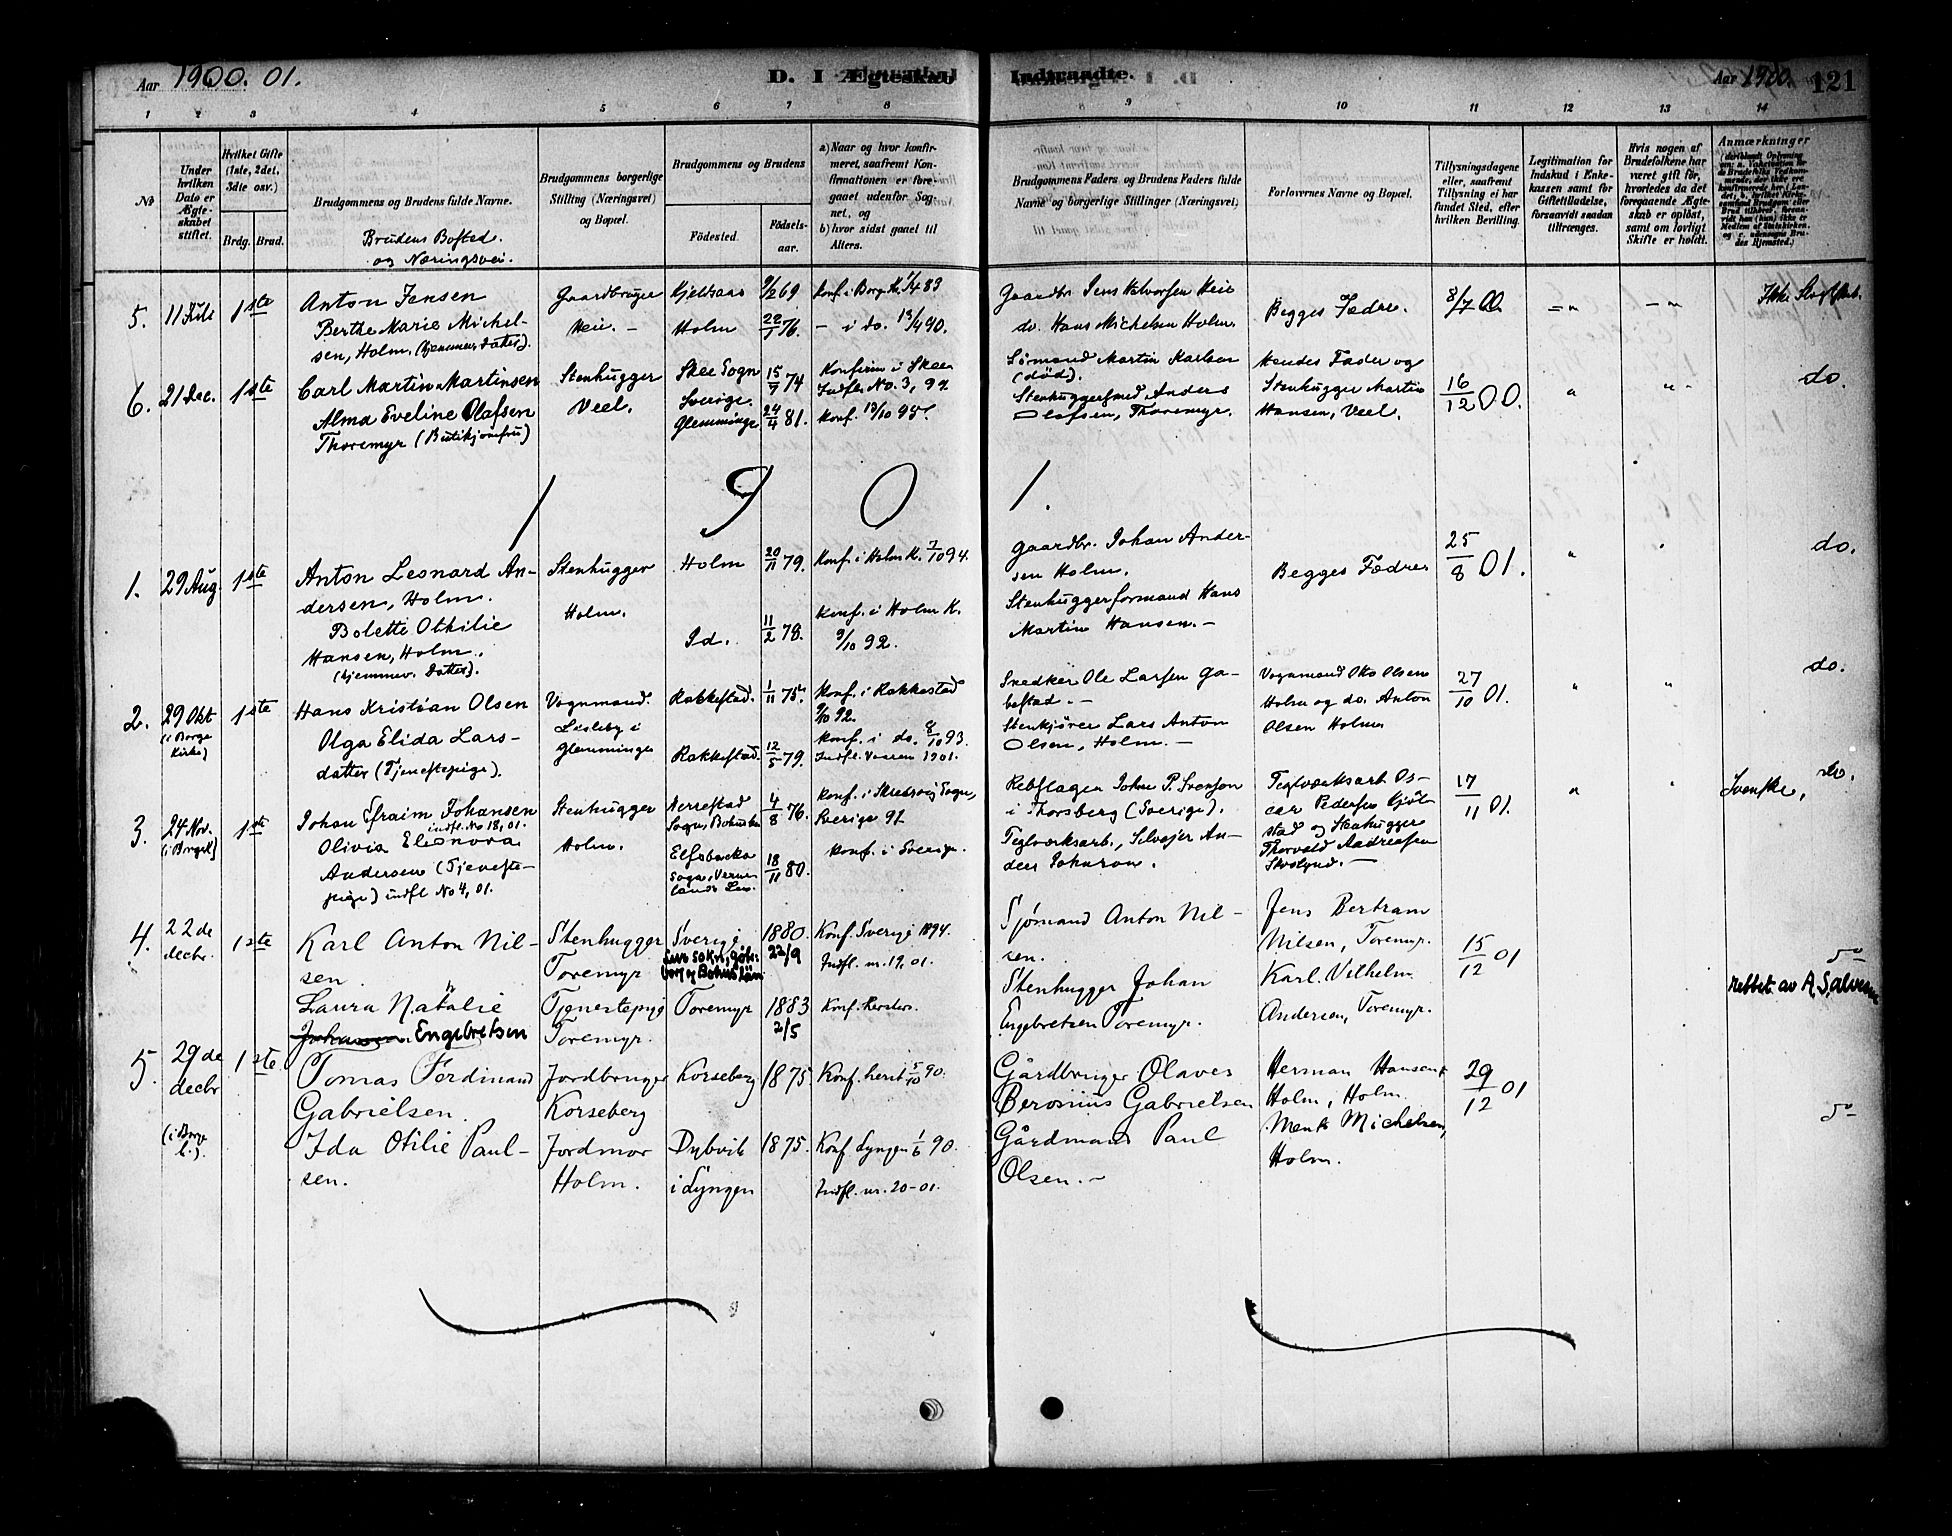 Aar 1900. 01.
D. I Ægteskab
Indtraadte.
Aar 1900.
121
1 2 3 4 5 6 7 8 9 10 11 12 13 14
No
Under hvilken Dato er Ægteskabet stiftet.
Hvilket Gifte (1ste, 2det, 3die osv.)
Brdg. Brud.
Brudgommens og Brudens fulde Navne.
Brudens Bosted og Næringsvei.
Brudgommens borgerlige Stilling (Næringsvei) og Bopæl.
Brudgommens og Brudens
Fødested.
Fødselsaar.
a) Naar og hvor konfirmeret, saafremt Konfirmationen er foregaaet udenfor Sognet, og
b) hvor sidst gaaet til Alters.
Brudgommens Faders og Brudens Faders fulde Navne og borgerlige Stillinger (Næringsvei)
Forlovernes Navne og Bopæl.
Tillysningsdagene eller, saafremt Tillysning ei har fundet Sted, efter hvilken Bevilling.
Legitimation for Indskud i Enkekassen samt for Giftetilladelse, forsaavidt saadan tiltrænges.
Hvis nogen af Brudefolkene har været gift før, hvorledes da det foregaaende Ægteskab er opløst, samt om lovligt Skifte er holdt.
Anmærkninger
5. 11 Juli 1ste
Anton Jensen
Berthe Marie Michel-
sen, Holm. (hjemmev. Datter).
Gaardbruger
Heie. –
Kjeldsaas 9/2 69
Holm 22/7 76.
Konf. i Borge K. 1/4 83
– i do. 13/4 90.
Gaardbr. Jens Halvorsen Heie
do. Hans Michelsen Holm
Begges Fædre.
8/7 00
6. 21 Dec. 1ste
Carl Martin Martinsen
Alma Eveline Olafsen
Thoremyr (Butikjomfru)
Stenhugger
Veel.
Skee Sogn 15/7 74
Sverige.
Glemminge 24/4 81.
Konfirm i Skee
Indfl. No. 3, 92
Konf. 13/10 95.
Sømand Martin Karlsen
(død).
Stenhuggerfmd Anders
Olafsen, Thoremyr.
Hendes Fader og
Stenhugger Martin
Hansen, Veel.
16/12 00.
do.
1 9 0 1.
1. 29 Aug. 1ste
Anton Leonard An-
dersen, Holm.
Bolette Othilie
Hansen, Holm.
(hjemmev. Datter).
Stenhugger
Holm.
Holm 20/11 79.
Id. 11/2 78.
Konf. i Holm K. 7/10 94.
Konf. i Holm K.
9/10 92.
Gaardbr. Johan Ander-
sen Holm.
Stenhuggerformand Hans
Martin Hansen. –
Begges Fædre
25/8 01.
do.
2. 29 Okt 1ste
(i Borge
Kirke)
Hans Kristian Olsen
Olga Elida Lars-
datter (Tjenestepige).
Vognmand.
Lisleby i
Glemminge
Rakkestad. 1/11 75.
Rakkestad. 12/5 79.
Konf. i Rakkestad
9/10 92.
Konf. i do. 8/10 93.
1901.
Snedker Ole Larsen Ga-
bestad. –
Stenkjører Lars Anton
Olsen, Holm. –
Vognmand Ole Olsen
Holm og do. Anton
Olsen Holm
27/10 01.
do.
3. 24 Nov. 1ste
Johan Efraim Johansen
indfl. No 18, 01.
Olivia Elenora
Andersen (Tjeneste-
pige) indfl No 4, 01.
Stenhugger
Holm.
4/8 76.
18/11 80.
Konf. i Sverige.
i Thorsberg (Sverige).
17/11 01.
Svenske, do.
4. 22de decbr. 1ste
Karl Anton Nil-
sen
Laura Natalie
Johansen Engebretsen
Stenhugger
Toremyr
Tjenestepige
Toremyr.
Sverige 1880.
22/9
Toremyr 1883
2/5
Konf. Sverige 1894.
Indfl. nr. 19, 01.
Sjømand Anton Nil-
sen.
Stenhugger Johan
Engebretsen Toremyr.
Jens Bertram
Nilsen, Toremyr.
Karl Vilhelm
Andersen, Toremyr.
15/12 01
Rettet av A. Salvesen
5. 29de decbr 1ste
Tomas Ferdinand
Gabrielsen.
Ida Otilie Paul-
sen.
Jordbruger
Korseberg
Jordmor
Holm.
Korseberg 1875
Dybvik 1875.
i Lyngen
Konf. herst 5/10 90.
Konf. Lyngen 1/6 90.
Indfl. nr. 20-01.
Gårdbruger Olaves
Beronius Gabrielsen
Gårdmand Paul
Olsen. –
Herman Hansen
Holm, Holm.
Michelsen,
Holm.
29/12 01